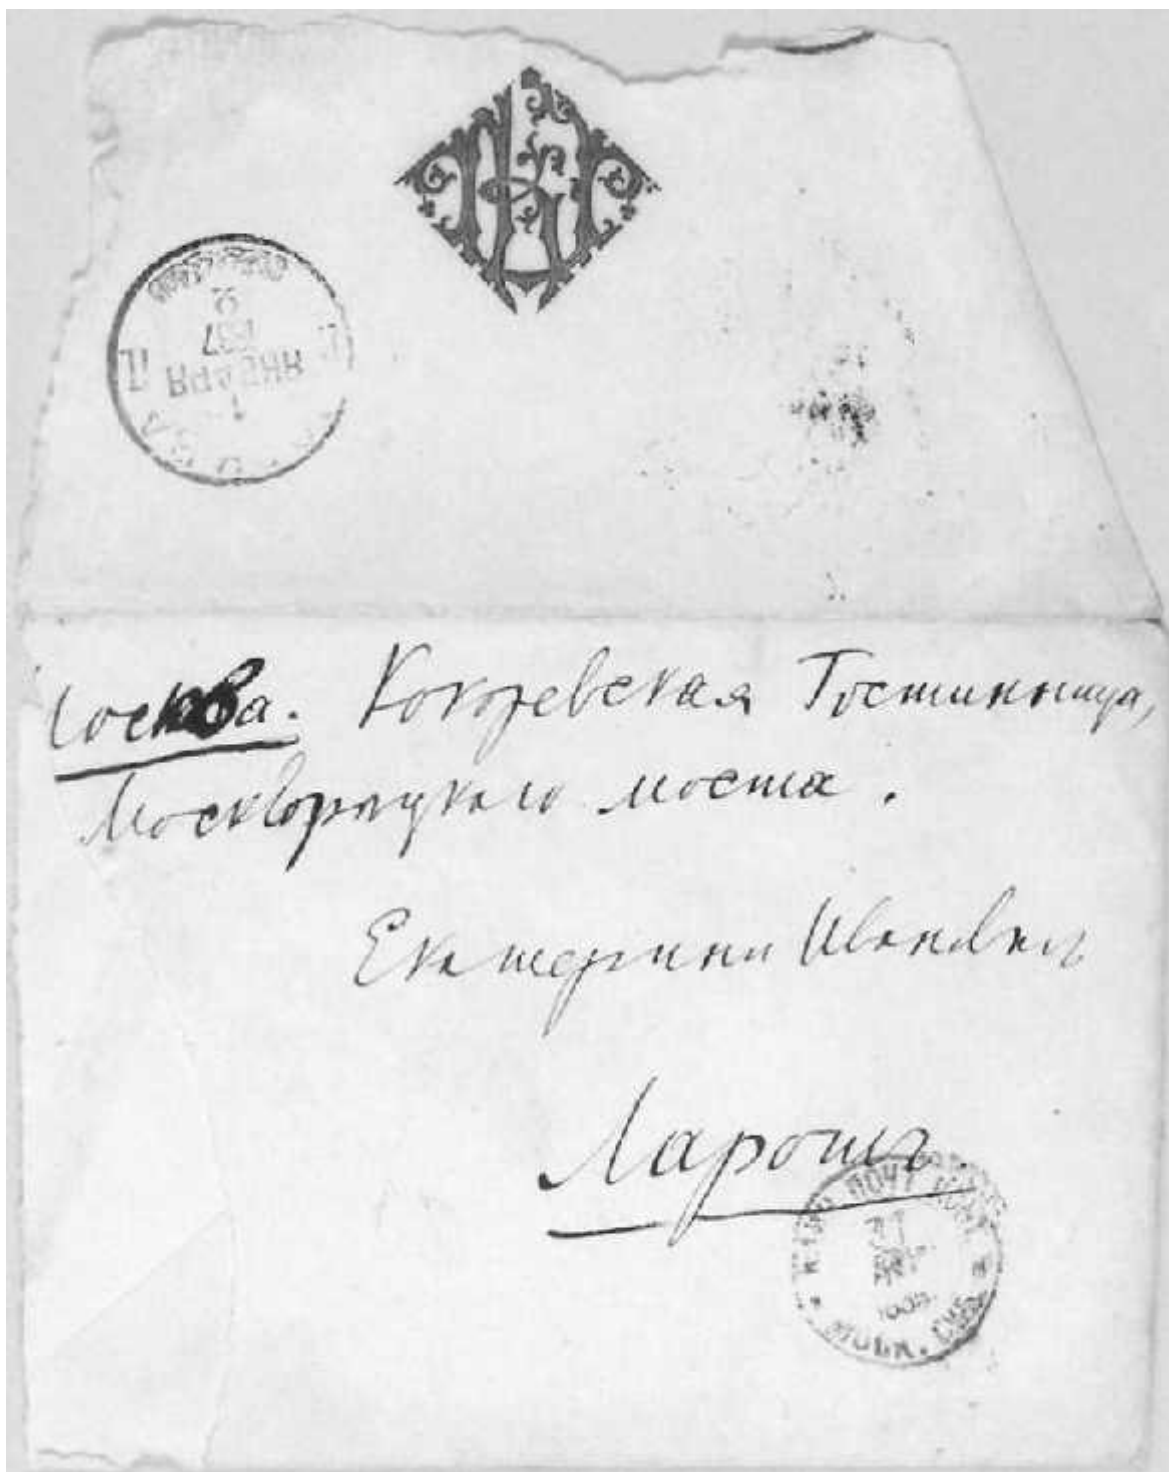 1
ЯНВАРЯ
1887
Москва. Кокоревская Гостинница,
Москворецкаго моста.
Екатерине Ивановне
Ларошъ.
ПОЧТ
31
МОСК.